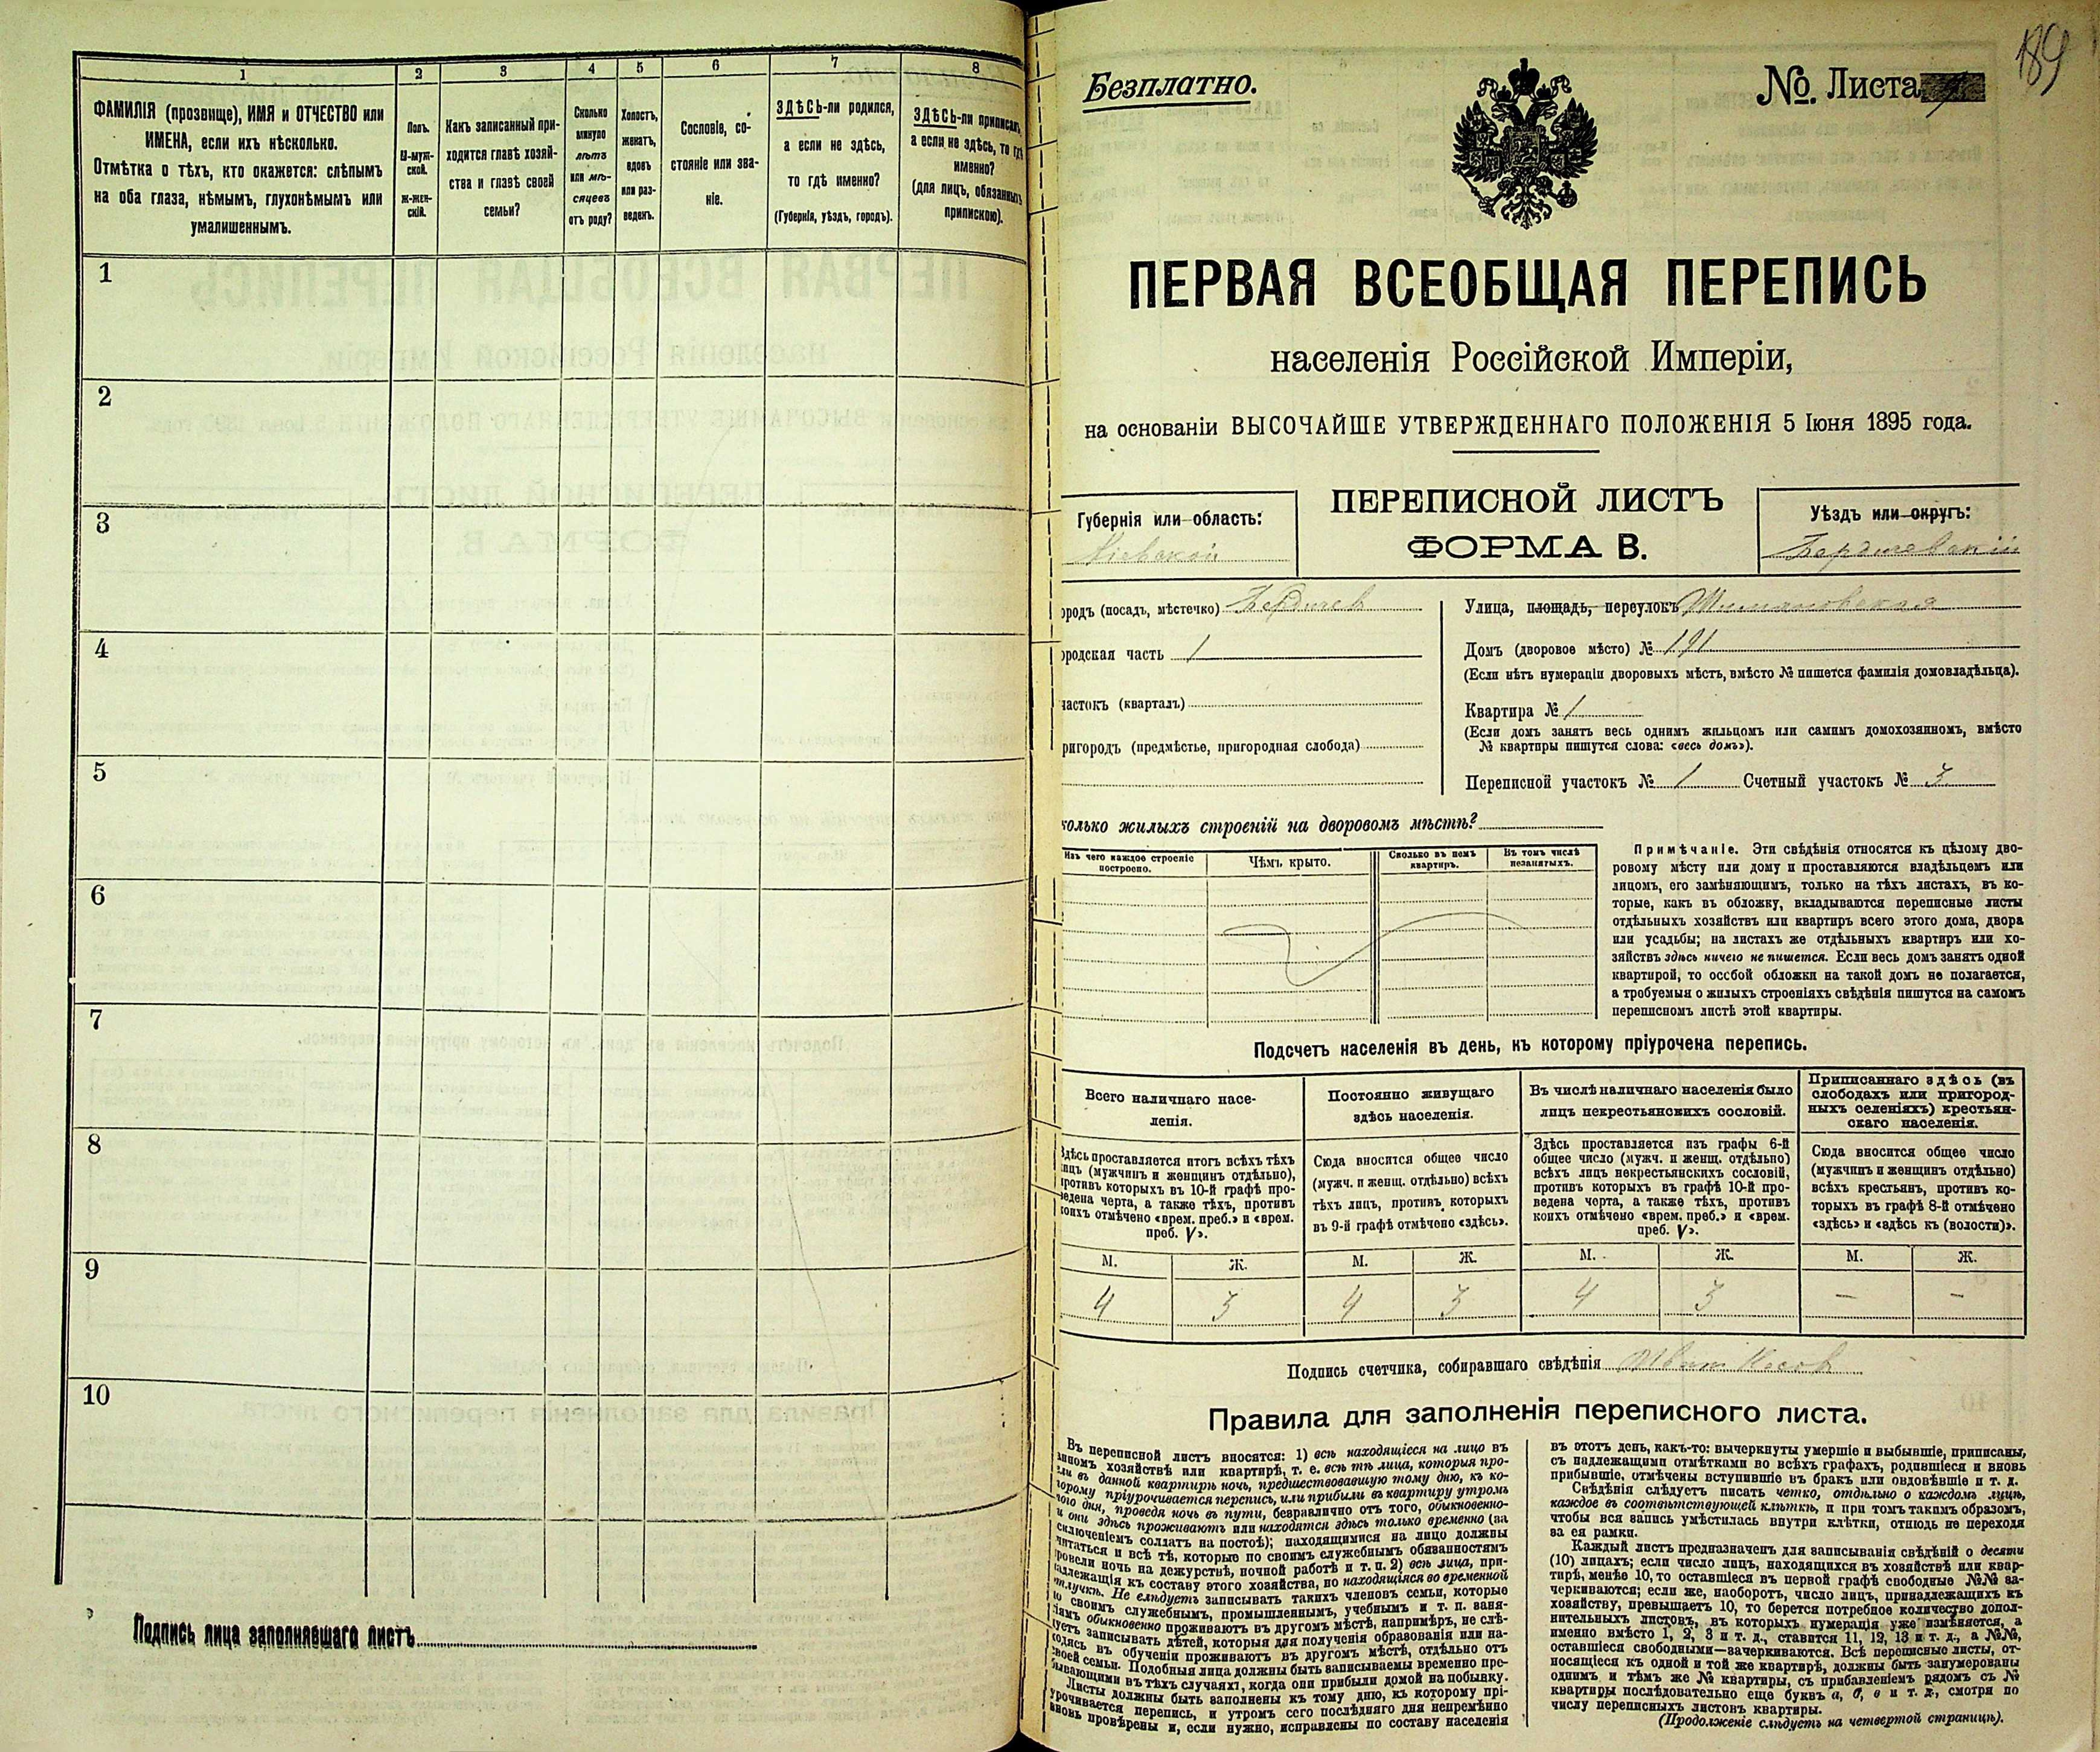 1
2
3
4
5
6
7
8
ФАМИЛІЯ (прозвище), ИМЯ и ОТЧЕСТВО или
ИМЕНА, если ихъ нѣсколько.
Отмѣтка о тѣхъ, кто окажется: слѣпымъ
на оба глаза, нѣмымъ, глухонѣмымъ или
умалишеннымъ.
Полъ.
М-муж-
ской.
Ж-жен-
скій.
Какъ записанный при-
ходится главѣ хозяй-
ства и главѣ своей
семьи?
Сколько
минуло
лѣтъ
или мѣ-
сяцевъ
отъ роду?
Холостъ,
женатъ,
вдовъ
или раз-
веденъ.
Сословіе, со-
стояніе или зва-
ніе.
ЗДѢСЬ-ли родился,
а если не здѣсь,
то гдѣ именно?
(Губернія, уѣздъ, городъ).
ЗДѢСЬ-ли приписанъ,
а если не здѣсь, то гдѣ
именно?
(для лицъ, обязанныхъ
припискою).
1
2
3
4
5
6
7
8
9
10
Подпись лица заполнявшаго листъ
189
Безплатно.
№. Листа
ПЕРВАЯ ВСЕОБЩАЯ ПЕРЕПИСЬ
населенія Россійской Имперіи,
на основаніи ВЫСОЧАЙШЕ УТВЕРЖДЕННАГО ПОЛОЖЕНІЯ 5 Іюня 1895 года.
Губернія или область:
Кіевской
ПЕРЕПИСНОЙ ЛИСТЪ
ФОРМА В.
Уѣздъ или округъ:
Бердичевскій
ородъ (посадъ, мѣстечко) Бердичев
ородская часть 1
частокъ (кварталъ)
ригородъ (предмѣстье, пригородная слобода)
Улица, площадь, переулокъ
Домъ (дворовое мѣсто) № 191
(Если нѣтъ нумераціи дворовыхъ мѣстъ, вмѣсто № пишется фамилія домовладѣльца).
Квартира № 1
(Если домъ занятъ весь однимъ жильцомъ или самимъ домохозяиномъ, вмѣсто
№ квартиры пишутся слова: «весь домъ»).
Переписной участокъ № 1 Счетный участокъ № 3
колько жилыхъ строеній на дворовомъ мѣстѣ?
Изъ чего каждое строеніе
построено.
Чѣмъ крыто.
Сколько въ немъ
квартиръ.
Въ томъ числѣ
незанятыхъ.
Примѣчаніе. Эти свѣдѣнія относятся къ цѣлому дво-
ровому мѣсту или дому и проставляются владѣльцемъ или
лицомъ, его замѣняющимъ, только на тѣхъ листахъ, въ ко-
торые, какъ въ обложку, вкладываются переписные листы
отдѣльныхъ хозяйствъ или квартиръ всего этого дома, двора
или усадьбы; на листахъ же отдѣльныхъ квартиръ или хо-
зяйствъ здѣсь ничего не пишется. Если весь домъ занятъ одной
квартирой, то особой обложки на такой домъ не полагается,
а требуемыя о жилыхъ строеніяхъ свѣдѣнія пишутся на самомъ
переписномъ листѣ этой квартиры.
Подсчетъ населенія въ день, къ которому пріурочена перепись.
Всего наличнаго насе-
ленія.
Здѣсь проставляется итогъ всѣхъ тѣхъ
лицъ (мужчинъ и женщинъ отдѣльно),
противъ которыхъ въ 10-й графѣ про-
ведена черта, а также тѣхъ, противъ
коихъ отмѣчено «врем. преб.» и «врем.
преб. V».
Постоянно живущаго
здѣсь населенія.
Сюда вносится общее число
(мужч. и женщ. отдѣльно) всѣхъ
тѣхъ лицъ, противъ которыхъ
въ 9-й графѣ отмѣчено «здѣсь».
Въ числѣ наличнаго населенія было
лицъ некрестьянскихъ сословій.
Здѣсь проставляется изъ графы 6-й
общее число (мужч. и женщ. отдѣльно)
всѣхъ лицъ некрестьянскихъ сословій,
противъ которыхъ въ графѣ 10-й про-
ведена черта, а также тѣхъ, противъ
коихъ отмѣчено «врем. преб.» и «врем.
преб. V».
Приписаннаго здѣсь (въ
слободахъ или пригород-
ныхъ селеніяхъ) крестьян-
скаго населенія.
Сюда вносится общее число
(мужчинъ и женщинъ отдѣльно)
всѣхъ крестьянъ, противъ ко-
торыхъ въ графѣ 8-й отмѣчено
«здѣсь» и «здѣсь къ (волости)».
М. Ж. М. Ж. М. Ж. М. Ж.
4 3 4 3 4 3 — —
Подпись счетчика, собиравшаго свѣдѣнія
Правила для заполненія переписного листа.
Въ переписной листъ вносятся: 1) всѣ находящіеся на лицо въ
данномъ хозяйствѣ или квартирѣ, т. е. всѣ тѣ лица, которыя про-
вели въ данной квартирѣ ночь, предшествовавшую тому дню, къ ко-
торому пріурочивается перепись, или прибыли въ квартиру утромъ
того дня, проведя ночь въ пути, безразлично отъ того, обыкновенно-
и они здѣсь проживаютъ или находятся здѣсь только временно (за
исключеніемъ солдатъ на постоѣ); находящимися на лицо должны
считаться и всѣ тѣ, которые по своимъ служебнымъ обязанностямъ
провели ночь на дежурствѣ, ночной работѣ и т. п. 2) всѣ лица, при-
надлежащія къ составу этого хозяйства, но находящіяся во временной
отлучкѣ. Не слѣдуетъ записывать такихъ членовъ семьи, которые
по своимъ служебнымъ, промышленнымъ, учебнымъ и т. п. заня-
тіямъ обыкновенно проживаютъ въ другомъ мѣстѣ, напримѣръ, не слѣ-
дуетъ записывать дѣтей, которыя для полученія образованія или на-
ходясь въ обученіи проживаютъ въ другомъ мѣстѣ, отдѣльно отъ
своей семьи. Подобныя лица должны быть записываемы временно пре-
бывающими въ тѣхъ случаяхъ, когда они прибыли домой на побывку.
Листы должны быть заполнены къ тому дню, къ которому прі-
урочивается перепись, и утромъ сего послѣдняго дня непремѣнно
вновь провѣрены и, если нужно, исправлены по составу населенія
въ этотъ день, какъ-то: вычеркнуты умершіе и выбывшіе, приписаны,
съ надлежащими отмѣтками во всѣхъ графахъ, родившіеся и вновь
прибывшіе, отмѣчены вступившіе въ бракъ или овдовѣвшіе и т. д.
Свѣдѣнія слѣдуетъ писать четко, отдѣльно о каждомъ лицѣ,
каждое въ соотвѣтствующей клѣткѣ, и при томъ такимъ образомъ,
чтобы вся запись умѣстилась внутри клѣтки, отнюдь не переходя
за ея рамки.
Каждый листъ предназначенъ для записыванія свѣдѣній о десяти
(10) лицахъ; если число лицъ, находящихся въ хозяйствѣ или квар-
тирѣ, менѣе 10, то оставшіеся въ первой графѣ свободные №№ за-
черкиваются; если же, наоборотъ, число лицъ, принадлежащихъ къ
хозяйству, превышаетъ 10, то берется потребное количество допол-
нительныхъ листовъ, въ которыхъ нумерація уже измѣняется, а
именно вмѣсто 1, 2, 3 и т. д., ставится 11, 12, 13 и т. д., а №№,
оставшіеся свободными—зачеркиваются. Всѣ переписные листы, от-
носящіеся къ одной и той же квартирѣ, должны быть занумерованы
однимъ и тѣмъ же № квартиры, съ прибавленіемъ рядомъ съ №
квартиры послѣдовательно еще буквъ а, б, в и т. д., смотря по
числу переписныхъ листовъ квартиры.
(Продолженіе слѣдуетъ на четвертой страницѣ).